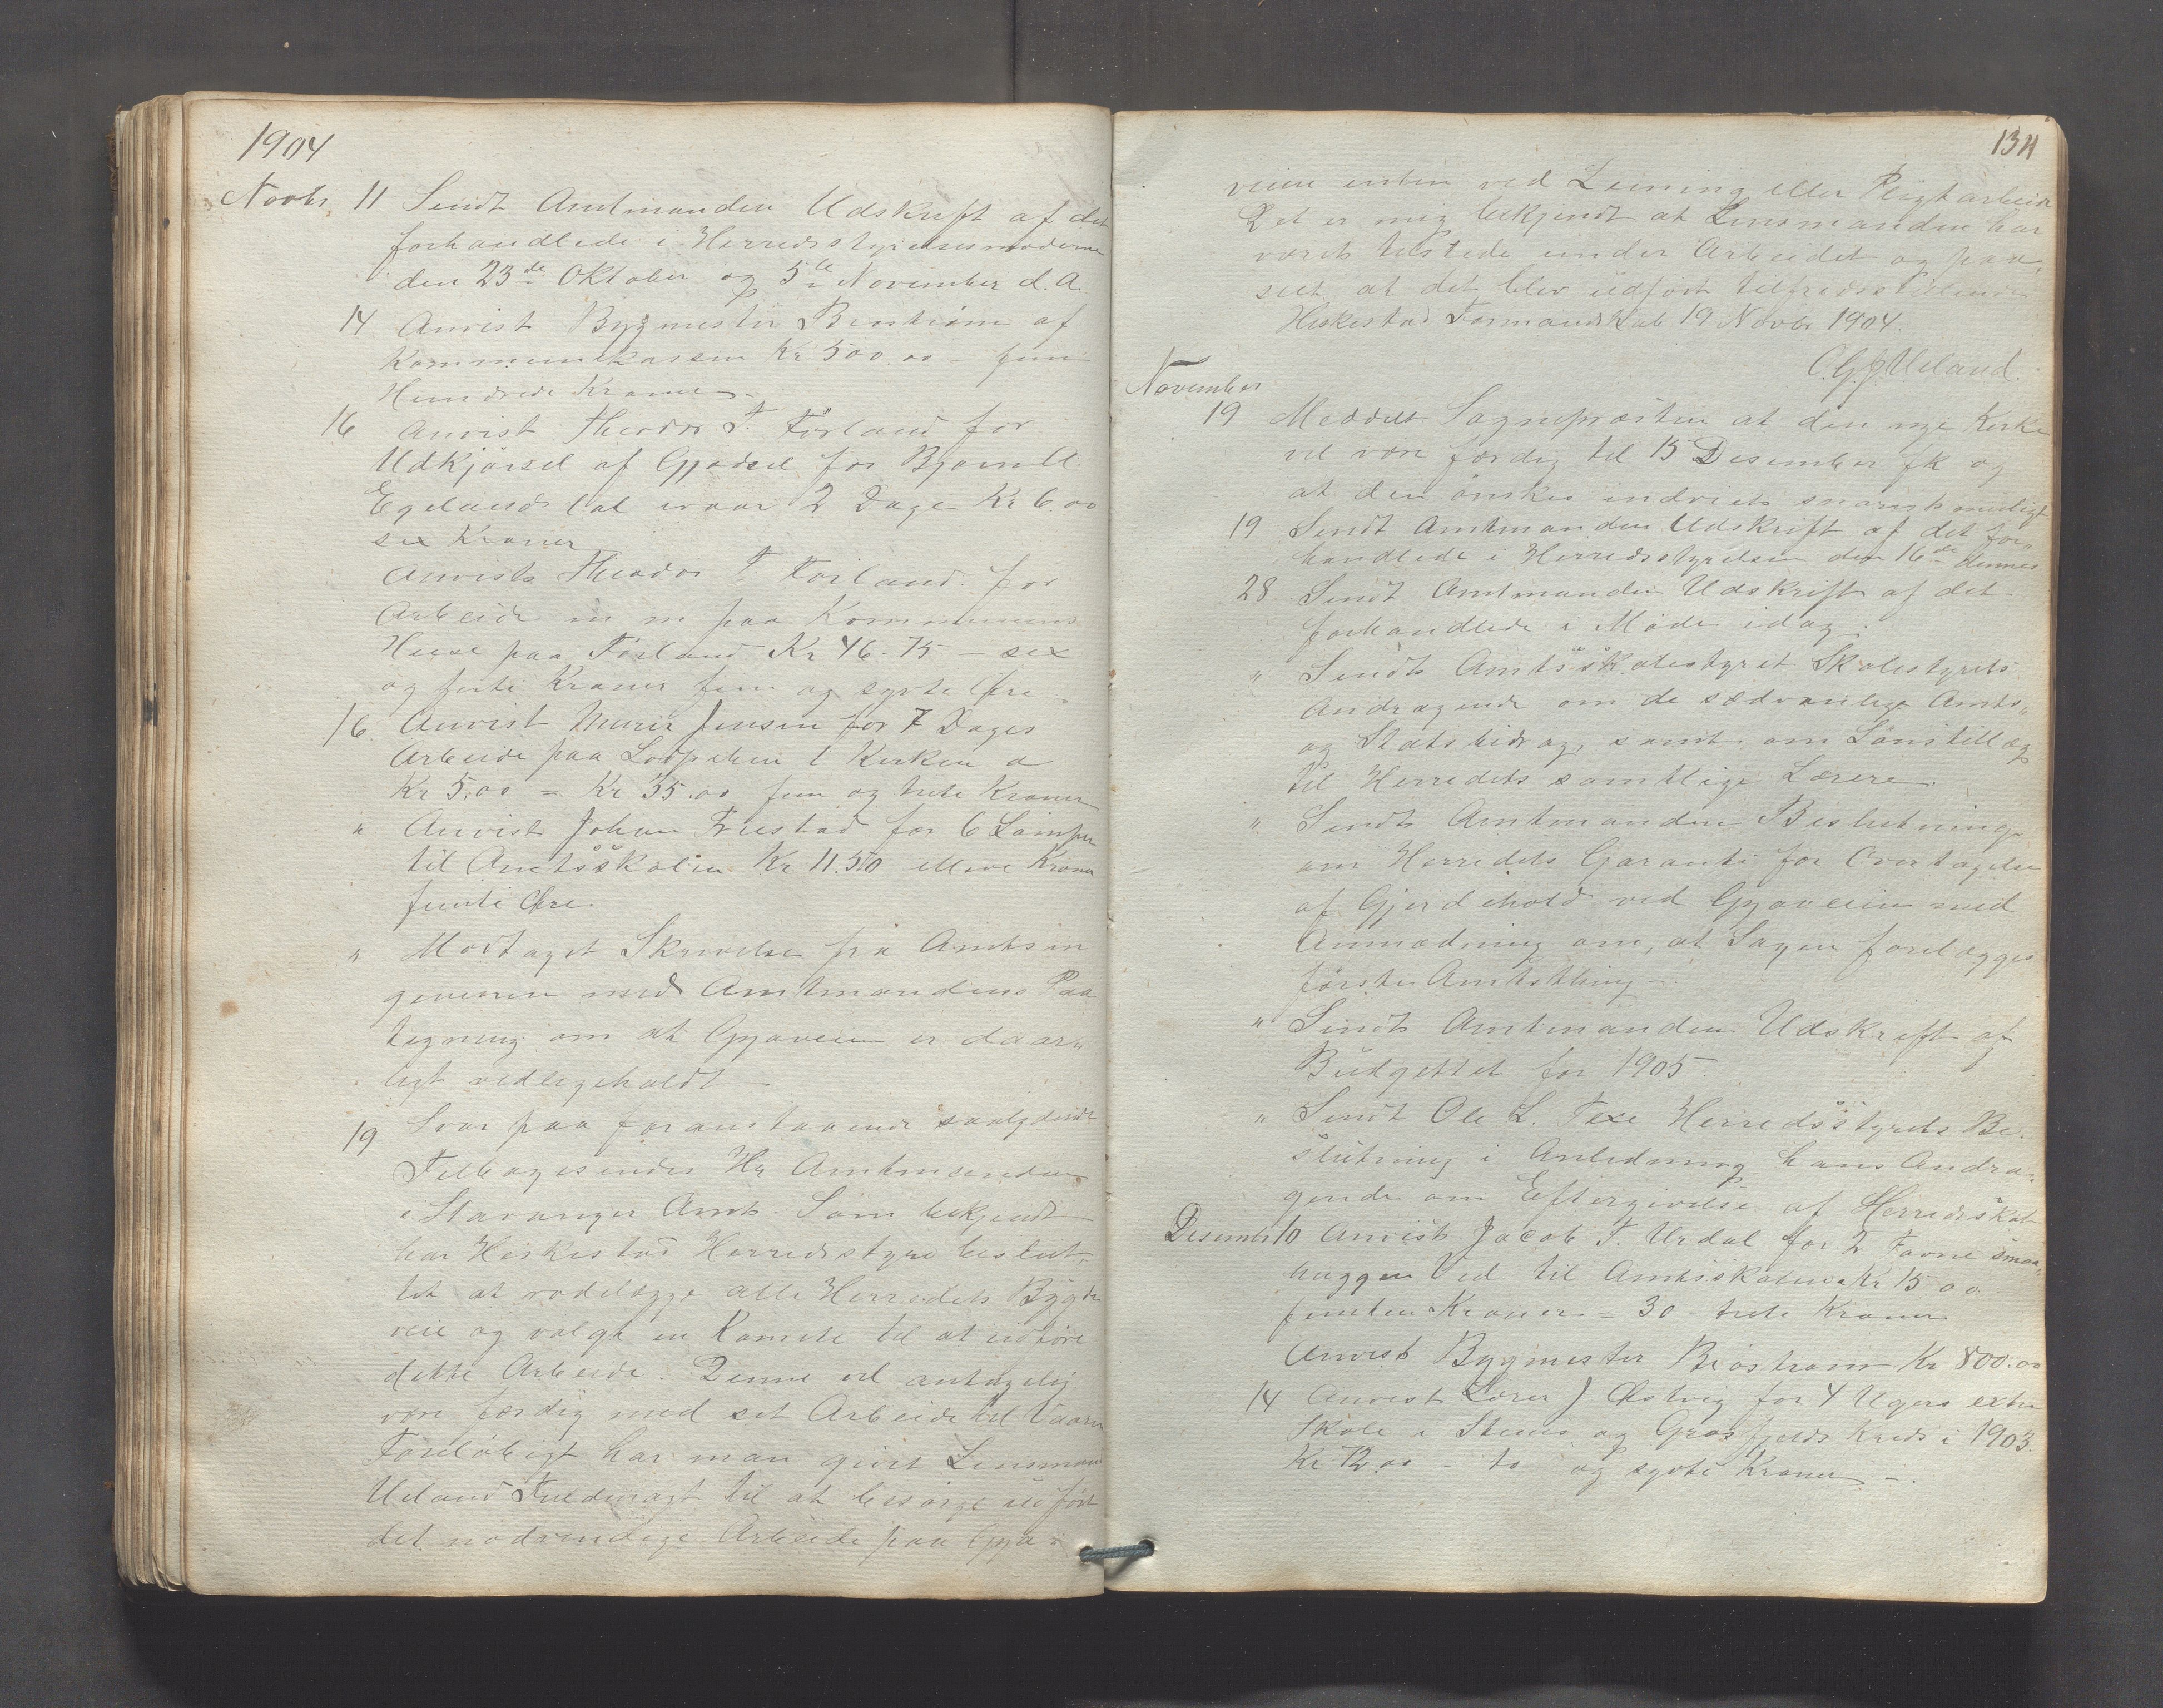 1904
Novbr 11 Sendt Amtmanden Udskrift af det
forhandlede i Herredsstyrelsesmøderne
den 23de Oktober og 5te November d. A.
14 Anvist Bygmester Broström af
Kommunekassen Kr 500.00 – fem
Hundrede Kroner –
16 Anvist Theodor T. Förland for
Udkjörsel af Gjødsel for
Egelandsdal 2 Dage Kr 6.00
sex Kroner
Anvist Theodor T. Förland for
Arbeide m m paa Kommunens
Huse paa Förland Kr 46.75 – sex
og firti Kroner fem og sytti Øre
16 Anvist Murer Jensen for 7 Dages
Arbeide paa i Kirken a
Kr 5.00 = Kr 35.00 fem og treti Kroner
" Anvist Johan Frestad for 6 Lamper
til Amtsskolen Kr 11.50 elleve Kroner
femti Øre
" Modtaget Skrivelse fra Amtsin
geniøren med Amtmandens Paa
tegning om at Gyaveien er daar„
ligt vedligeholdt –
19 Svar paa foranstaaende saalydende
Tilbagesendes Hr Amtmanden
i Stavanger Amt. Som bekjendt
har Heskestad Herredsstyre beslut„
tet at rodelægge alle Herredets Bygde
veie og valgt en Komite til at udföre
dette Arbeide. Denne vil antagelig
være færdig med set Arbeide til Vaaren
Foreløbigt har man givet Lensmand
Ueland Fuldmagt til at besørge udført
det nødvendige Arbeide paa Gya„
134
veien enten ved Leining eller Pligtarbeide
Det er mig bekjendt at Lensmanden har
været tilstede under Arbeidet og paa„
seet at det blev udfört tilfredsstillende
Heskestad Formandskab 19 Novbr 1904
C.G. Ueland.
November
19 Meddelt Sognepræsten at den nye Kirke
vil være færdig til 15 Desember fk og
at den önskes indviet snarest muligt
19 Sendt Amtmanden Udskrift af det for„
handlede i Herredsstyrelsen den 16de dennes
28 Sendt Amtmanden Udskrift af det
forhandlede i Möde idag.
" Sendt Amtsskolestyret Skolestyrets
Andragende om de sædvanlige Amts„
og Statsbidrag, samt om Lönstillæg
til Herredets samtlige Lærere.
" Sendt Amtmanden Beslutning
om Herredets Garanti for Overtagelse
af Gjerdehold ved Gyaveien med
Anmodning om, at Sagen forelægges
förste Amtsthing –
" Sendt Amtmanden Udskrift af
Budgettet for 1905.
" Sendt Ole L. Texe Herredsstyrets Be„
slutning i Anledning hans Andra„
gende om Eftergivelse af Herredsskat
Desember 10 Anvist Jacob T. Urdal for 2 Favne smaa„
huggen Ved til Amtsskolen a Kr 15.00
femten Kroner = 30 – treti Kroner
Anvist Bygmester Broström Kr 800.00
14 Anvist Lærer J Østvig for 4 Ugers extra
Skole i og Grøsfjelds Kreds i 1903.
Kr 72.00 – to og sytti Kroner –.